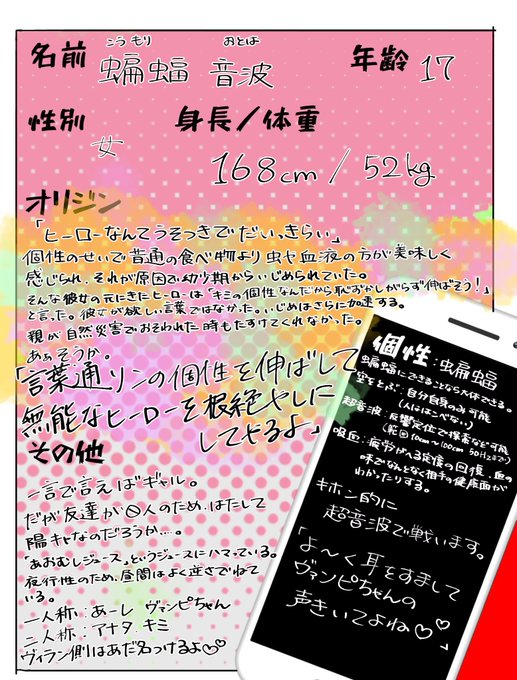 こうもり おとは
名前 蝙蝠 音波 年齢 17
性別 女 身長/体重
168cm / 52kg
オリジン
「ヒーローなんてうそつきでだいっきらい」
個性のせいで普通の食べ物より虫や血液の方が美味しく
感じられ、それが原因で幼少期からいじめられていた。
そんな彼女の元にきたヒーローは「キミの個性なんだから恥ずかしがらず伸ばそう!」
と言った。彼女が欲しい言葉ではなかった。いじめはさらに加速する。
親が自然災害でおそわれた時もたすけてくれなかった。
あぁそうか。
「言葉通りこの個性を伸ばして
無能なヒーローを根絶やしに
してやるよ」
その他
一言で言えばギャル。
だが友達が0人のため、はたして
陽キャなのだろうか…。
「あおむしジュース」というジュースにハマっている。
夜行性のため、昼間はよく逆さでねて
いる。
一人称:あーし ヴァンピちゃん
二人称:アナタ キミ
ヴィラン側はあだ名つけるよ♡♡
個性:蝙蝠
蝙蝠にできることなら大体できる。
空をとぶ:自分自身のみ可能
(人ははこべない)
超音波:反響定位で探索など可能
(範囲10cm〜100cm 50Hzまで)
吸血:疲労がへる 定度の回復、血の
味でなんとなく相手の健康面が
わかったりする。
キホン的に
超音波で戦います。
「よ〜く耳をすまして
ヴァンピちゃんの
声きいてよね♡♡」